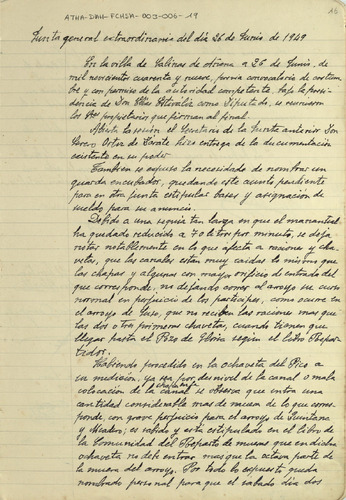 ATHA-DAH-FCHSA-003-006-19
16
Junta general extraordinaria del día 26 de Junio de 1949
En la villa de Salinas de Añana a 26 de Junio, de
mil novecientos cuarenta y nueve, previa convocatoria de costum
bre y con permiso de la autoridad competente, bajo la presi-
dencia de Don Elías como Diputado, se reunieron
los Sres propietarios que firman al final.
Abierta la sesión el Secretario de la Junta anterior Don
Ortiz de Zarate hizo entrega de la documentación
existente en su poder
Tambien se expuso la necesidad de nombrar un
guarda encubador, quedando este asunto pendiente
para en otra junta estipular bases y asignación de
sueldo para su anuncio.
Debido a una sequia tan larga en que el manantial
ha quedado reducido a 70 litros por minuto, se deja
notar notablemente en lo que afecta a raciones y cha-
vetas, que las canales estan muy caidas lo mismo que
las chapas y algunas con mayor orificio de entrada del
que corresponde, no dejando correr al arroyo su curso
normal en perjuicio de los participes, como ocurre en
el arroyo de Suso, que no reciben las raciones mas que
las dos o tres primeras chavetas, cuando tienen que
llegar hasta el Pozo de según el libro Repar-
tidor.
Habiendo procedido en la ochaveta del Pico a
su medición, ya sea por desnivel de la canal o mala
colocación de la chapa en la canal se observa que entra una
cantidad considerable mas de muera de lo que corres-
ponde, con grave perjuicio para el arroyo de Quintana
y; es sabido y está estipulado en el libro de
la Comunidad del Reparto de mueras que en dicha
ochaveta no debe entrar mas que la octava parte de
la muera del arroyo. Por todo lo expuesto queda
nombrado personal para que el sabado dia dos